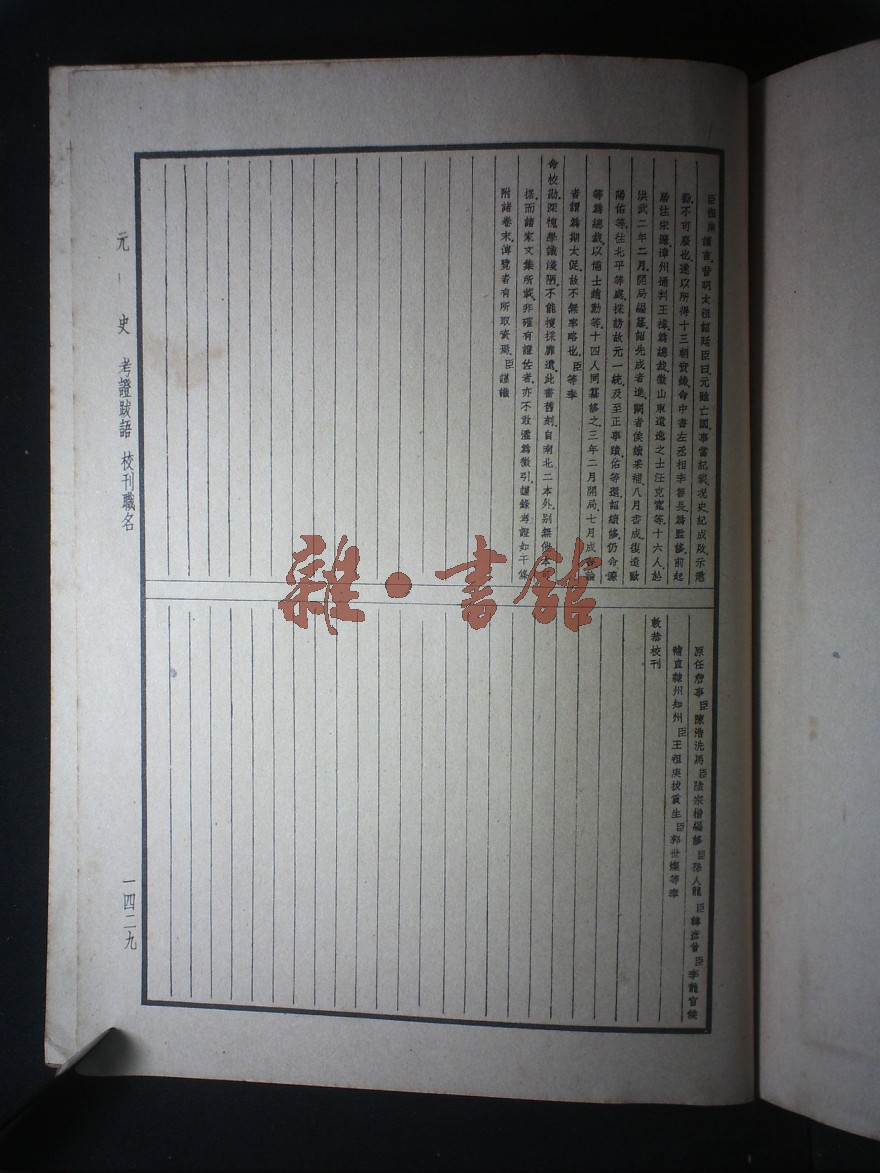 臣祖庚謹言昔明太祖詔廷臣曰元雖亡國事當紀載况史紀成敗示懲
勸不可廢也遂以所得十三朝實錄命中書左丞相李善長爲監修前起
居注宋濂漳州通判王禕爲總裁徵山東遺逸之士汪克寬等十六人於
洪武二年二月開局編纂詔先成者進闕者俟續采補八月書成復遣歐
陽佑等往北平等處採訪故元一統及至正事蹟佑等還詔續修仍命濂
等爲總裁以儒士趙壎等十四人同纂修之三年二月開局七月成書論
者謂爲期太促故不無率略也臣等奉
命校勘深愧學識淺陋不能摉採靡遺此書舊刻自南北二本外別無他本
據而諸家文集所載非確有證佐者亦不敢濫爲徵引謹錄考證如干條
附諸卷末博覽者有所取資焉臣謹識
原任詹事臣陳浩洗馬臣陸宗楷編修臣孫人龍臣韓彦曾臣李龍官候
補直隸州知州臣王祖庚拔貢生臣郭世燦等奉
敕恭校刊
元史 考證跋語 校刊職名
一四二九
雜・書館